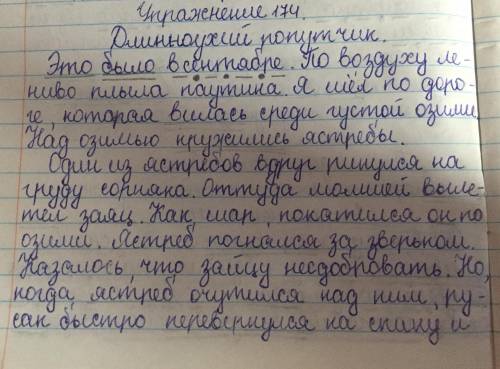 Упражнение 174.
Длинноухий попутчик.
Это было в сентябре. По воздуху ле-
ниво плыла паутина. Я шёл по доро-
ге, которая вилась среди густой озими.
Над озимью кружились ястребы.
Один из ястребов вдруг ринулся на
груду сорняка. Оттуда молнией выле-
тел заяц. Как, шар, покатился он по
озими. Ястреб погнался за зверьком.
Казалось, что зайцу несдобровать. Но,
когда, ястреб, очутился над ним, ру-
сак быстро перевернулся на спину и